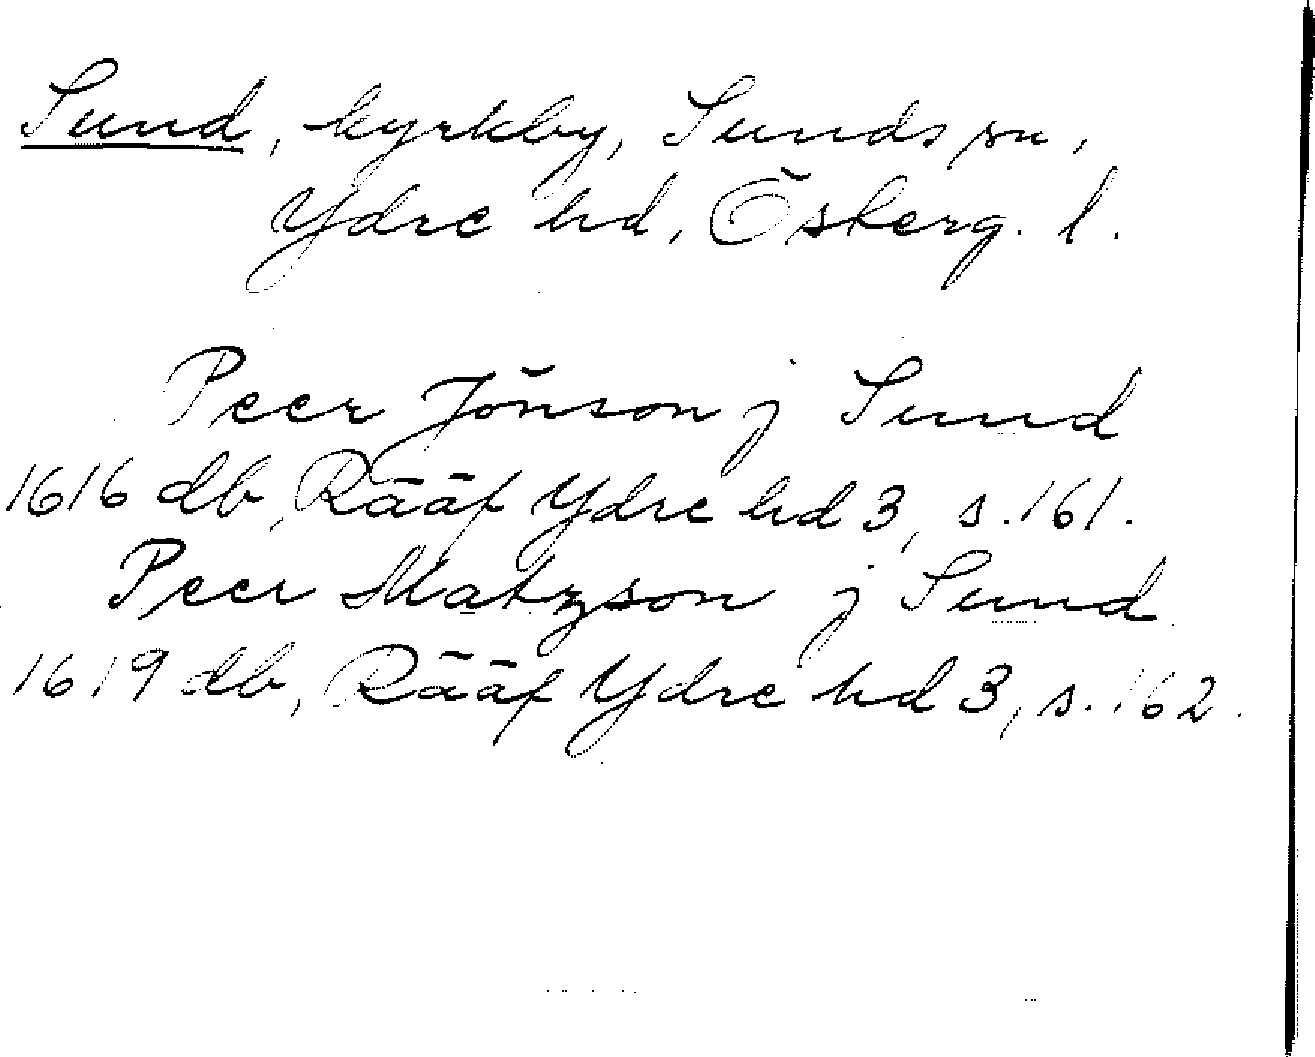 Sund, kyrkby, Sunds sn,
Ydre hd, Österg. l.
Peer Jönson j Sund
1616 db, Rääf Ydre hd 3, s. 161.
Peer Matzson j Sund
1619 db, Rääf Ydre hd 3, s. 162.